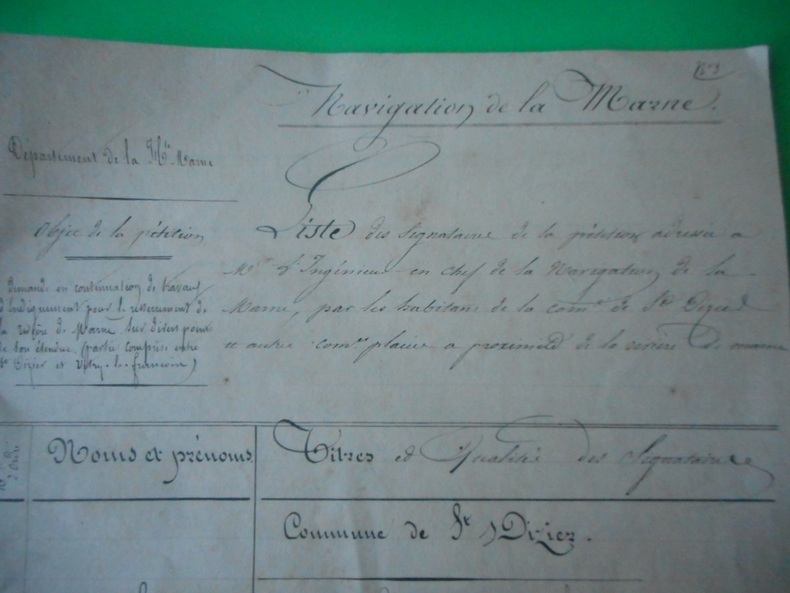 N° 3
Navigation de la Marne.
Département de la Hte Marne
Objet de la pétition
Demande en continuation de travaux
d'endiguement pour le resserrement de
la rivière de Marne sur divers points
de son étendue (partie comprise entre
St Dizier et Vitry-le-françois)
Liste des signataires de la pétition adressée à
Mr l'Ingénieur en chef de la Navigation de la
Marne, par les habitans de la comne de St Dizier
et autres comnes placées à proximité de la rivière de marne
Noms et prénoms
Titres et Qualité des Signataires
Commune de St Dizier.